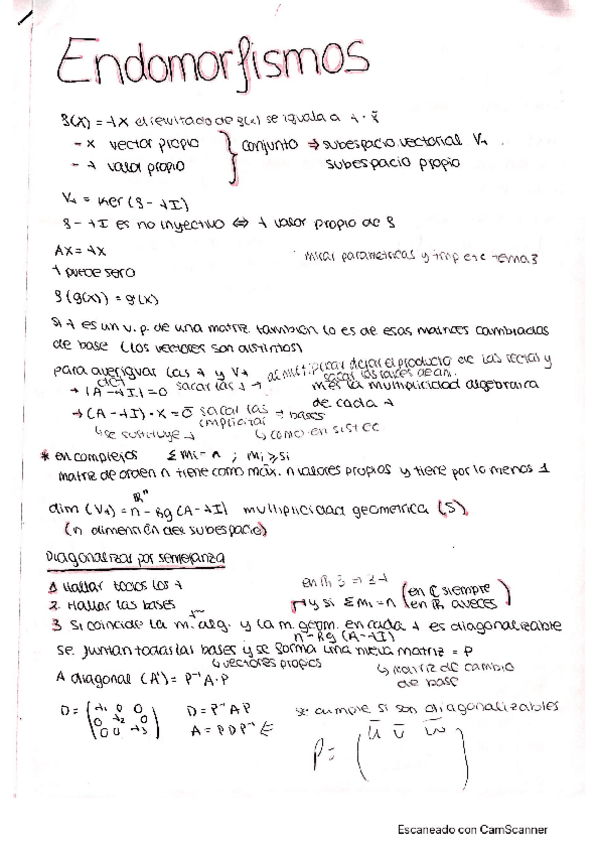 Endomorfismos
f(x) = λx el resultado de f(x) se iguala a λ · x̄
- x vector propio } conjunto ⇒ subespacio vectorial Vλ
- λ valor propio subespacio propio
Vλ = Ker (f - λI)
f - λI es no inyectivo ⇔ λ valor propio de f
AX = λX
mirar parametricas y imp etc tema 3
λ puede ser 0
si λ es un v. p. de una matriz también lo es de esas matrices cambiadas
de base (los vectores son distintos)
para averiguar las λ y Vλ al multiplicar dejar el producto de las
→ |A - λI| = 0 sacar las λ → m es la multiplicidad algebraica
de cada λ
→ (A - λI) · X = 0̄ sacar las implícitas → bases
↳ se sustituye λ ↳ como en
* en complejos Σmi = n ; mi ≥ si
matriz de orden n tiene como máx. n valores propios y tiene por lo menos 1
dim (Vλ) = n - Rg (A - λI) multiplicidad geometrica (S)
(n dimensión del subespacio)
Diagonalizar por semejanza
1 Hallar todos los λ
2. Hallar las bases
y si Σmi = n (en ℂ siempre
en ℝ a veces)
3 Si coincide la m. alg. y la m. geom. en cada λ es diagonalizable
n - Rg (A - λI)
se juntan todas las bases y se forma una nueva matriz = P
↳ vectores propios ↳ matriz de cambio
de base
A diagonal (A') = P⁻¹ A · P
D = (λ₁ 0 0
0 λ₂ 0
0 0 λ₃)
D = P⁻¹ A P
A = P D P⁻¹
se cumple si son diagonalizables
P = (ū v̄ w̄)
Escaneado con CamScanner